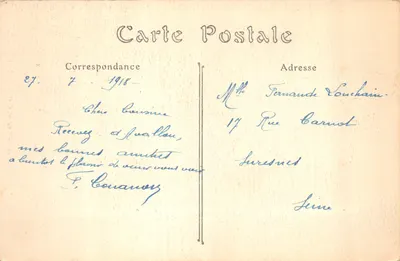 Carte Postale
Correspondance
27. 7. 1918
Chère Cousine
Recevez d'Avallon
mes bonnes amitiés
a bientot le plaisir de venir vous voir
F.
Adresse
Mlle Fernande
17 Rue Carnot
Suresnes
Seine